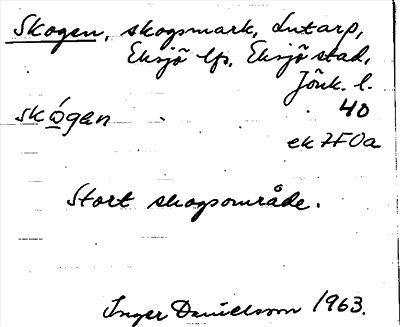 Skogen, skogsmark, Lutarp,
Eksjö lfs. Eksjö stad,
Jönk. l.
skógan
40
ek 7F0a
Stort skogsområde.
Inger Danielsson 1963.